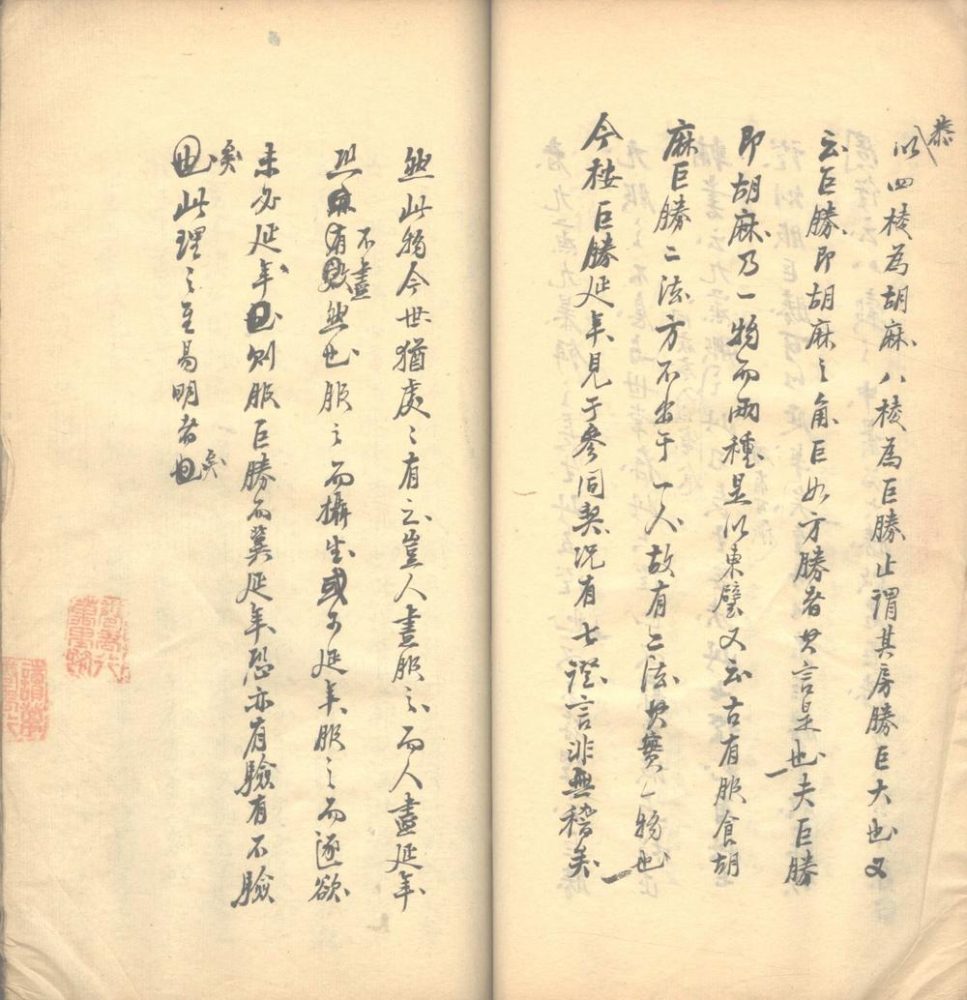 以四稜為胡麻八稜為巨勝止謂其房勝巨大也又
云巨勝即胡麻之角巨如方勝者其言是也夫巨勝
即胡麻乃一物而兩種是以東璧又云古有服食胡
麻巨勝二法方不出于一人故有二法其實一物也
今按巨勝延年見于參同契况有七證言非無稽矣
然此物今世猶處〻有之豈人盡服之而人盡延年
恐不盡然也服之而攝生或可延年服之而逐欲
未必延年矣則服巨勝而冀延年恐亦有驗有不驗
此理之至易明者矣